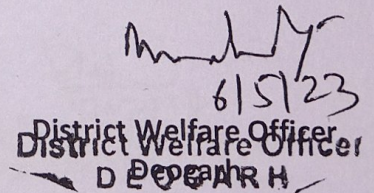 6/5/23
District Welfare Officer
District Welfare Officer
Deogarh
DEOGARH